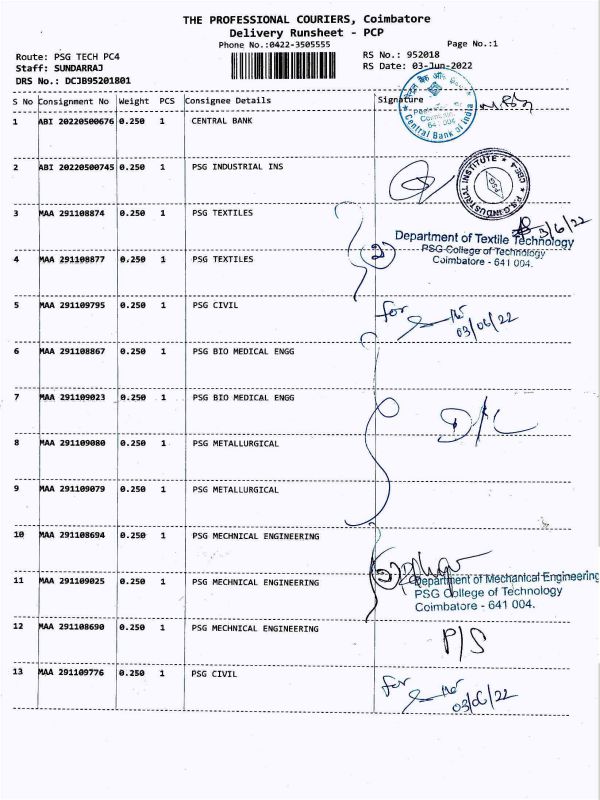 THE PROFESSIONAL COURIERS, Coimbatore
Delivery Runsheet - PCP
Phone No.:0422-3505555
Page No.:1
Route: PSG TECH PC4
RS No.: 952018
Staff: SUNDARRAJ
RS Date: 03-Jun-2022
DRS No.: DCJB95201801
S No Consignment No Weight PCS Consignee Details Signature
1 ABI 20220500676 0.250 1 CENTRAL BANK
Central Bank of India
2 ABI 20220500745 0.250 1 PSG INDUSTRIAL INS
P.S.G. INDUSTRIAL INSTITUTE
PSG
3 MAA 291108874 0.250 1 PSG TEXTILES
3/6/22
Department of Textile Technology
PSG College of Technology
Coimbatore - 641 004.
4 MAA 291108877 0.250 1 PSG TEXTILES
2
5 MAA 291109795 0.250 1 PSG CIVIL
for
03/06/22
6 MAA 291108867 0.250 1 PSG BIO MEDICAL ENGG
7 MAA 291109023 0.250 1 PSG BIO MEDICAL ENGG
D/L
8 MAA 291109080 0.250 1 PSG METALLURGICAL
9 MAA 291109079 0.250 1 PSG METALLURGICAL
10 MAA 291108694 0.250 1 PSG MECHNICAL ENGINEERING
11 MAA 291109025 0.250 1 PSG MECHNICAL ENGINEERING
Department of Mechanical Engineering
PSG College of Technology
Coimbatore - 641 004.
12 MAA 291108690 0.250 1 PSG MECHNICAL ENGINEERING
P/S
13 MAA 291109776 0.250 1 PSG CIVIL
for
03/06/22